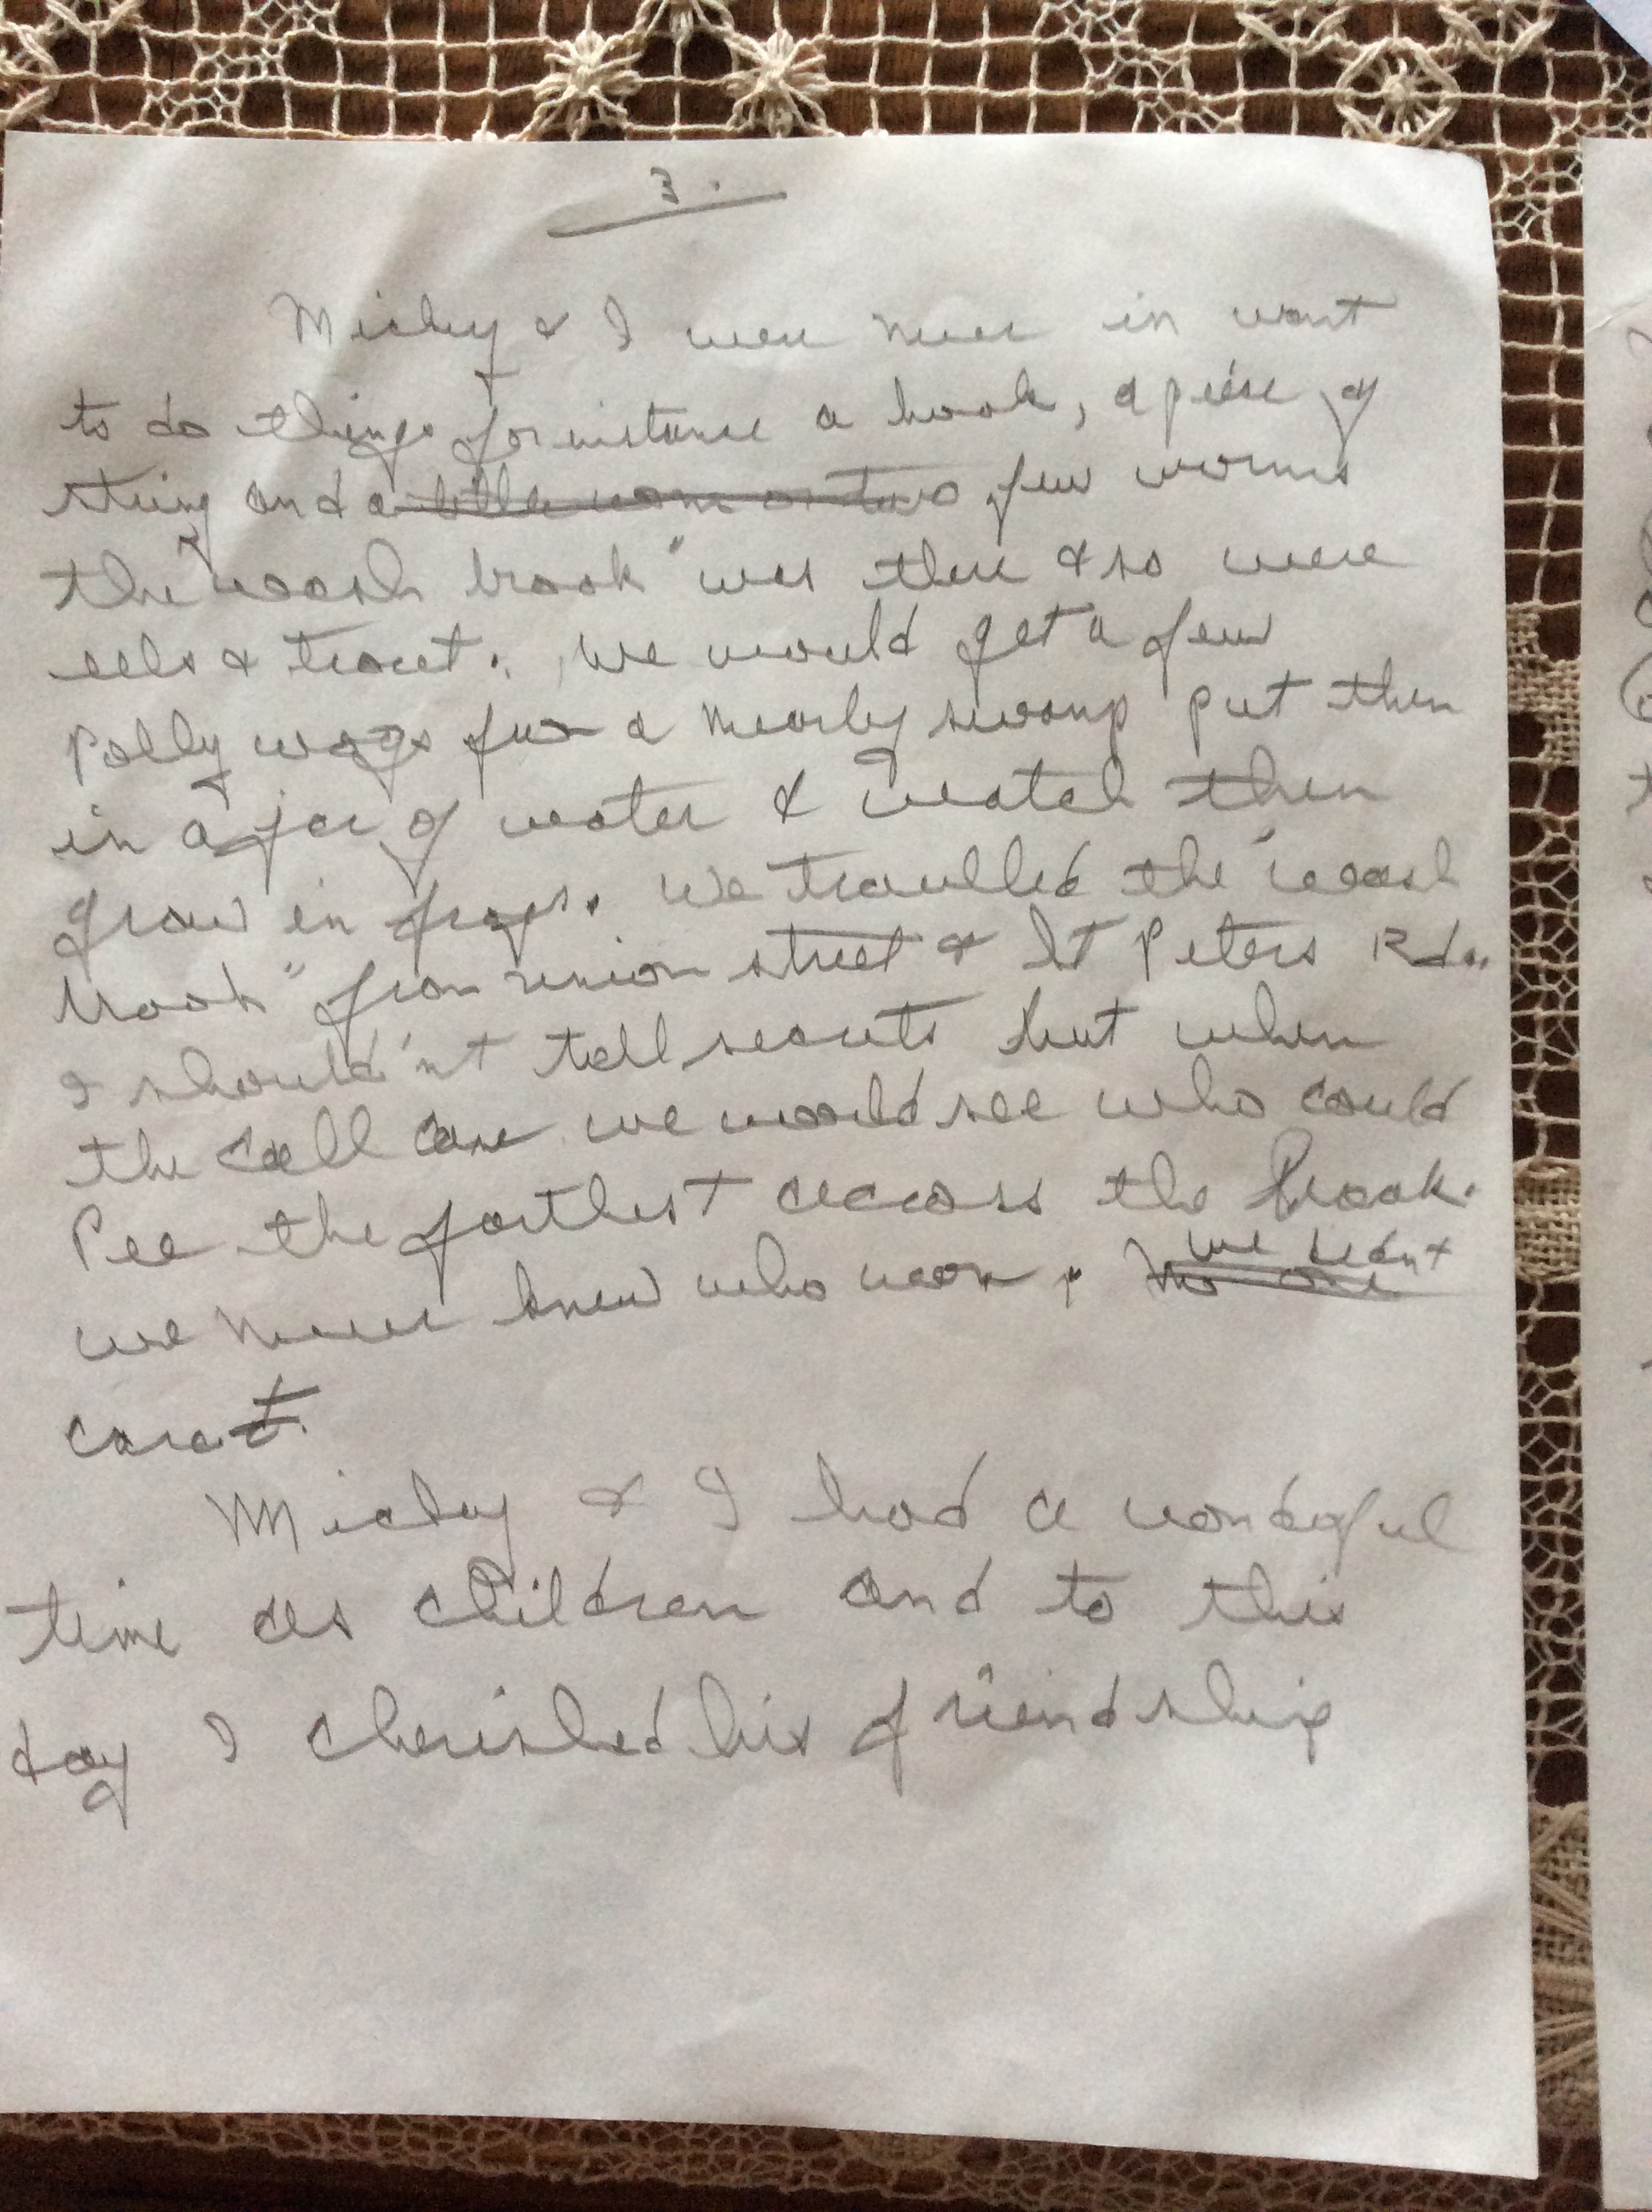 3.
Micky & I were never in want
to do things for instance a hook, a piece of
string and a little worm or two few worms
the "wash brook" was there & so were
eels & trout. we would get a few
Polly wogs from a nearby swamp put them
in a jar of water & watch them
grow in frogs. We travelled the "wash
brook" from union street & St Peters Rd..
I should'nt tell secrets but when
the call came we would see who could
Pee the farthest accross the Brook.
we never knew who won. No one we didnt
care
Micky & I had a wonderful
time as children and to this
day I cherished his friendship